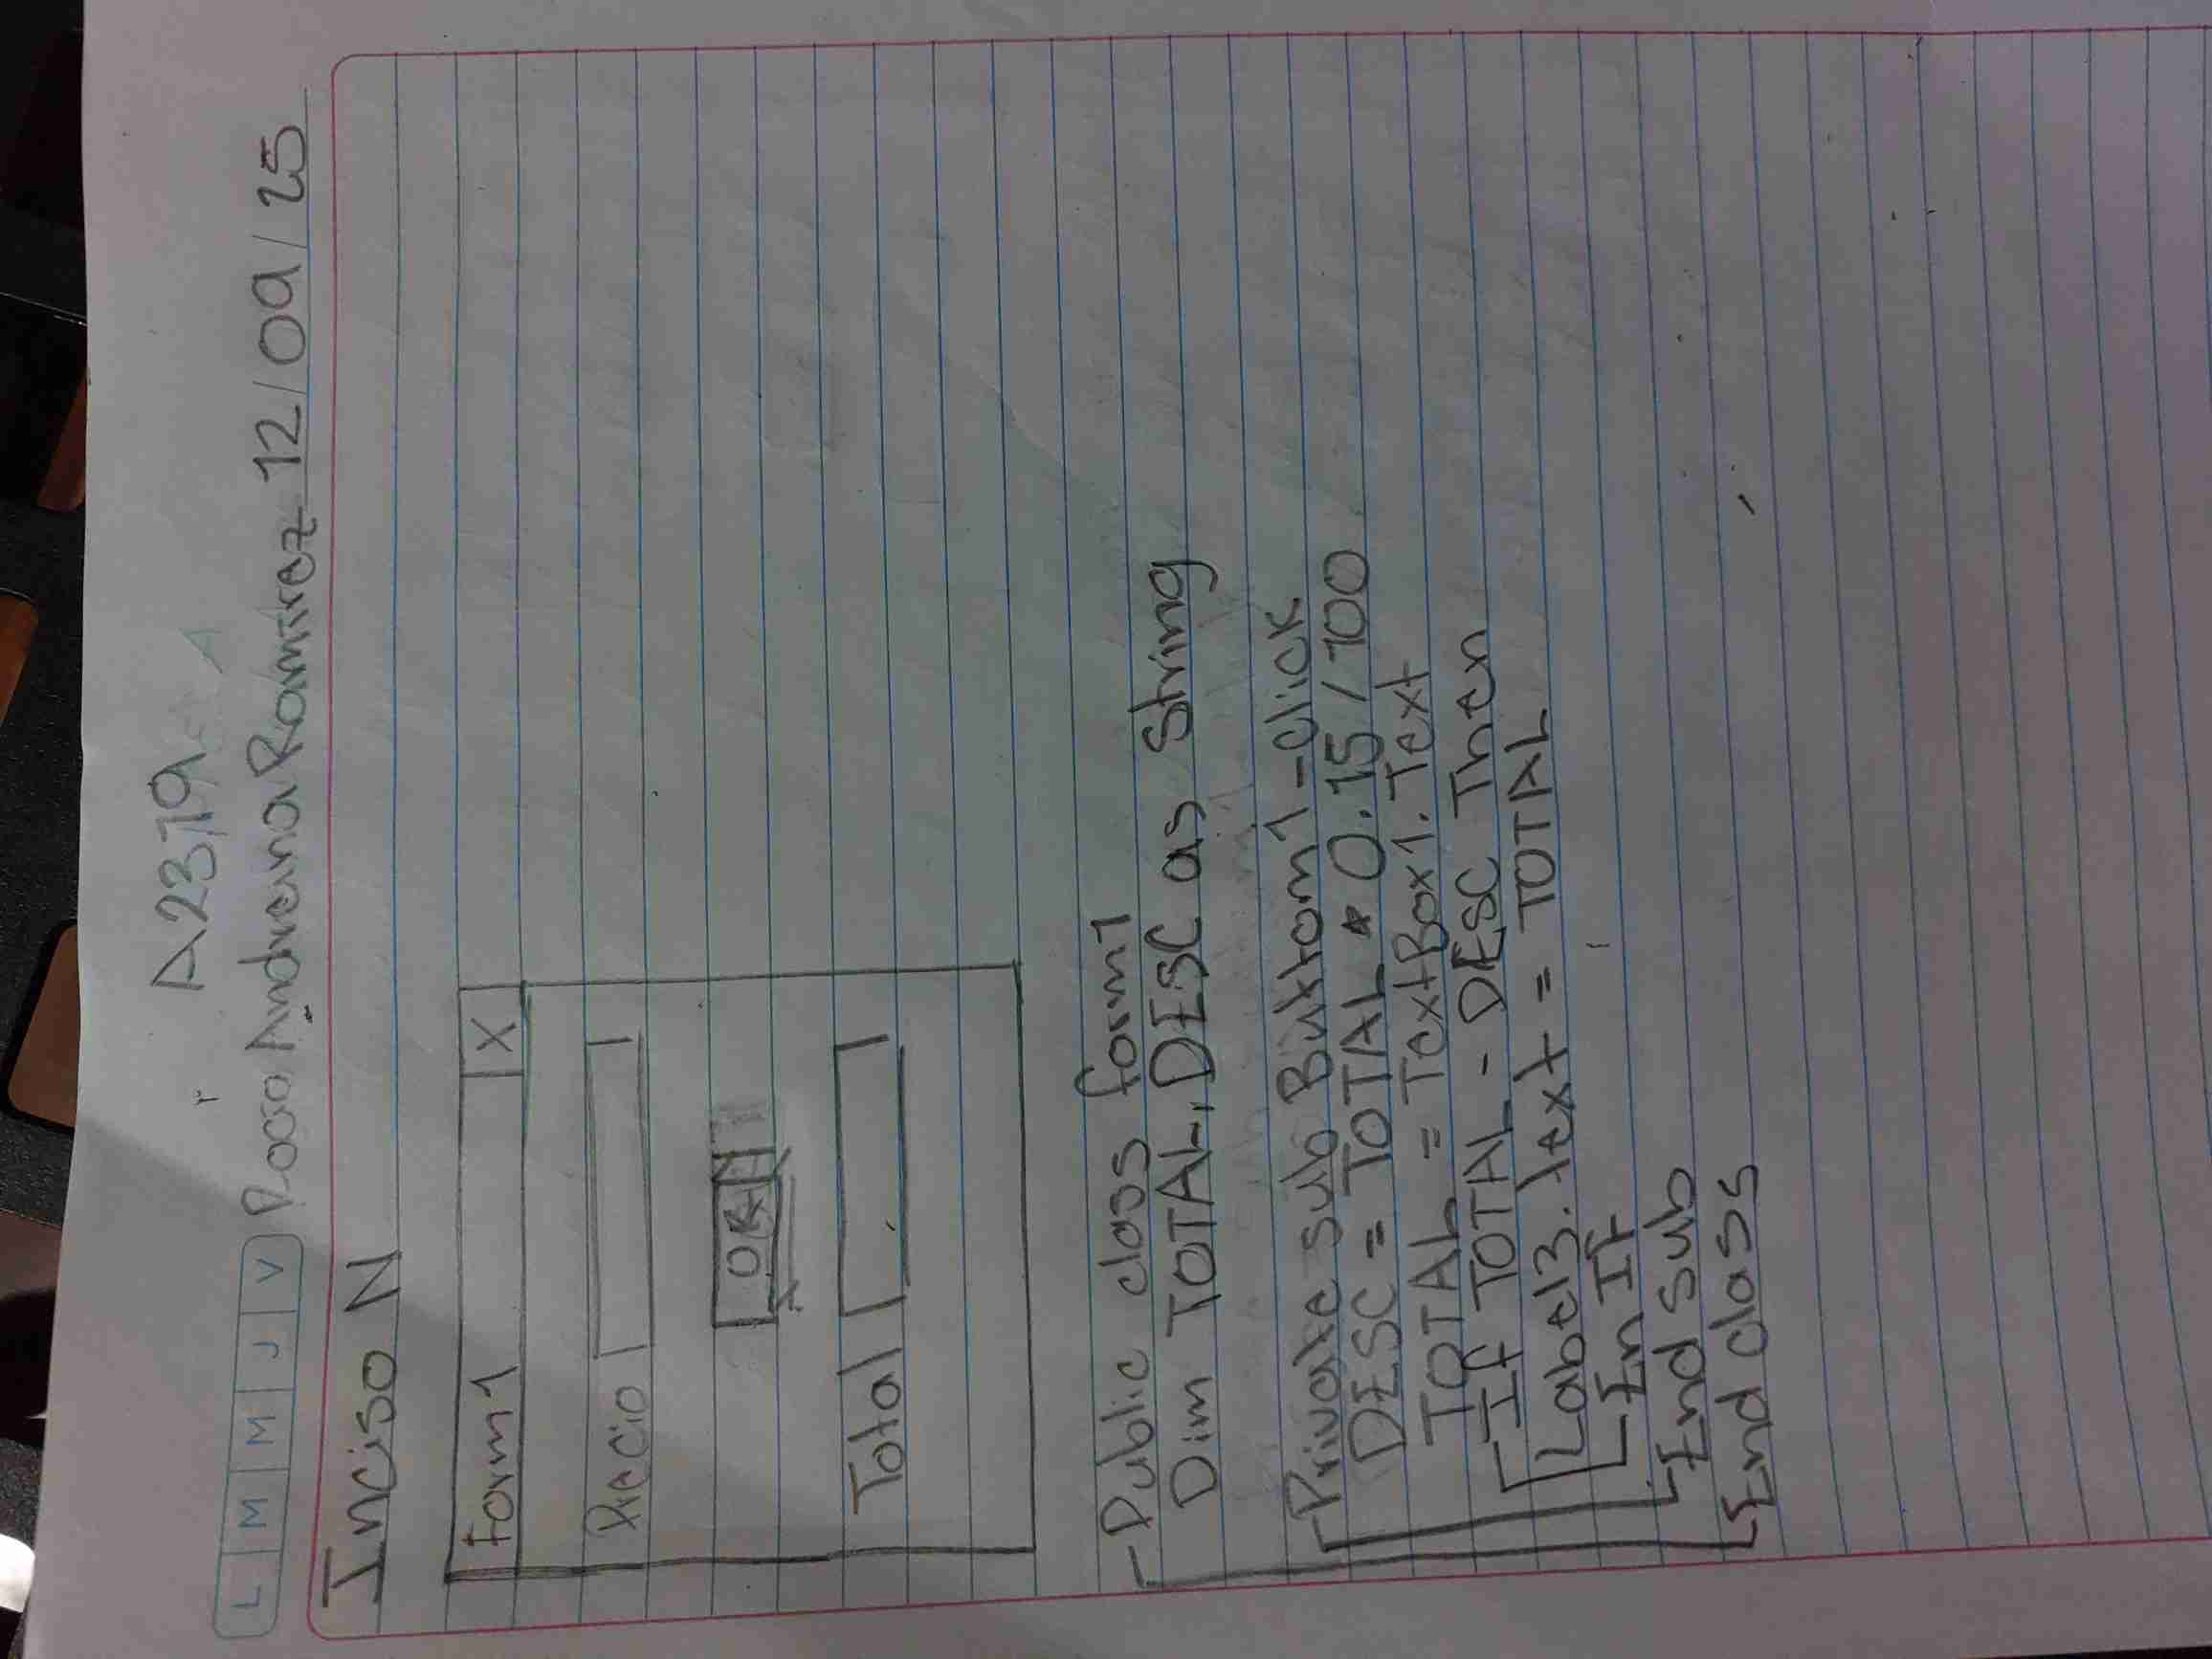 A2319
L M M J V
Andreana Ramirez 12/09/25
Inciso N
Form1 X
Precio
OK
Total
Public class form1
Dim TOTAL, DESC as String
Private sub Buttom1-click
DESC = TOTAL * 0.15/100
TOTAL = TextBox1.Text
If TOTAL - DESC Then
Label3.text = TOTAL
En If
End sub
End class